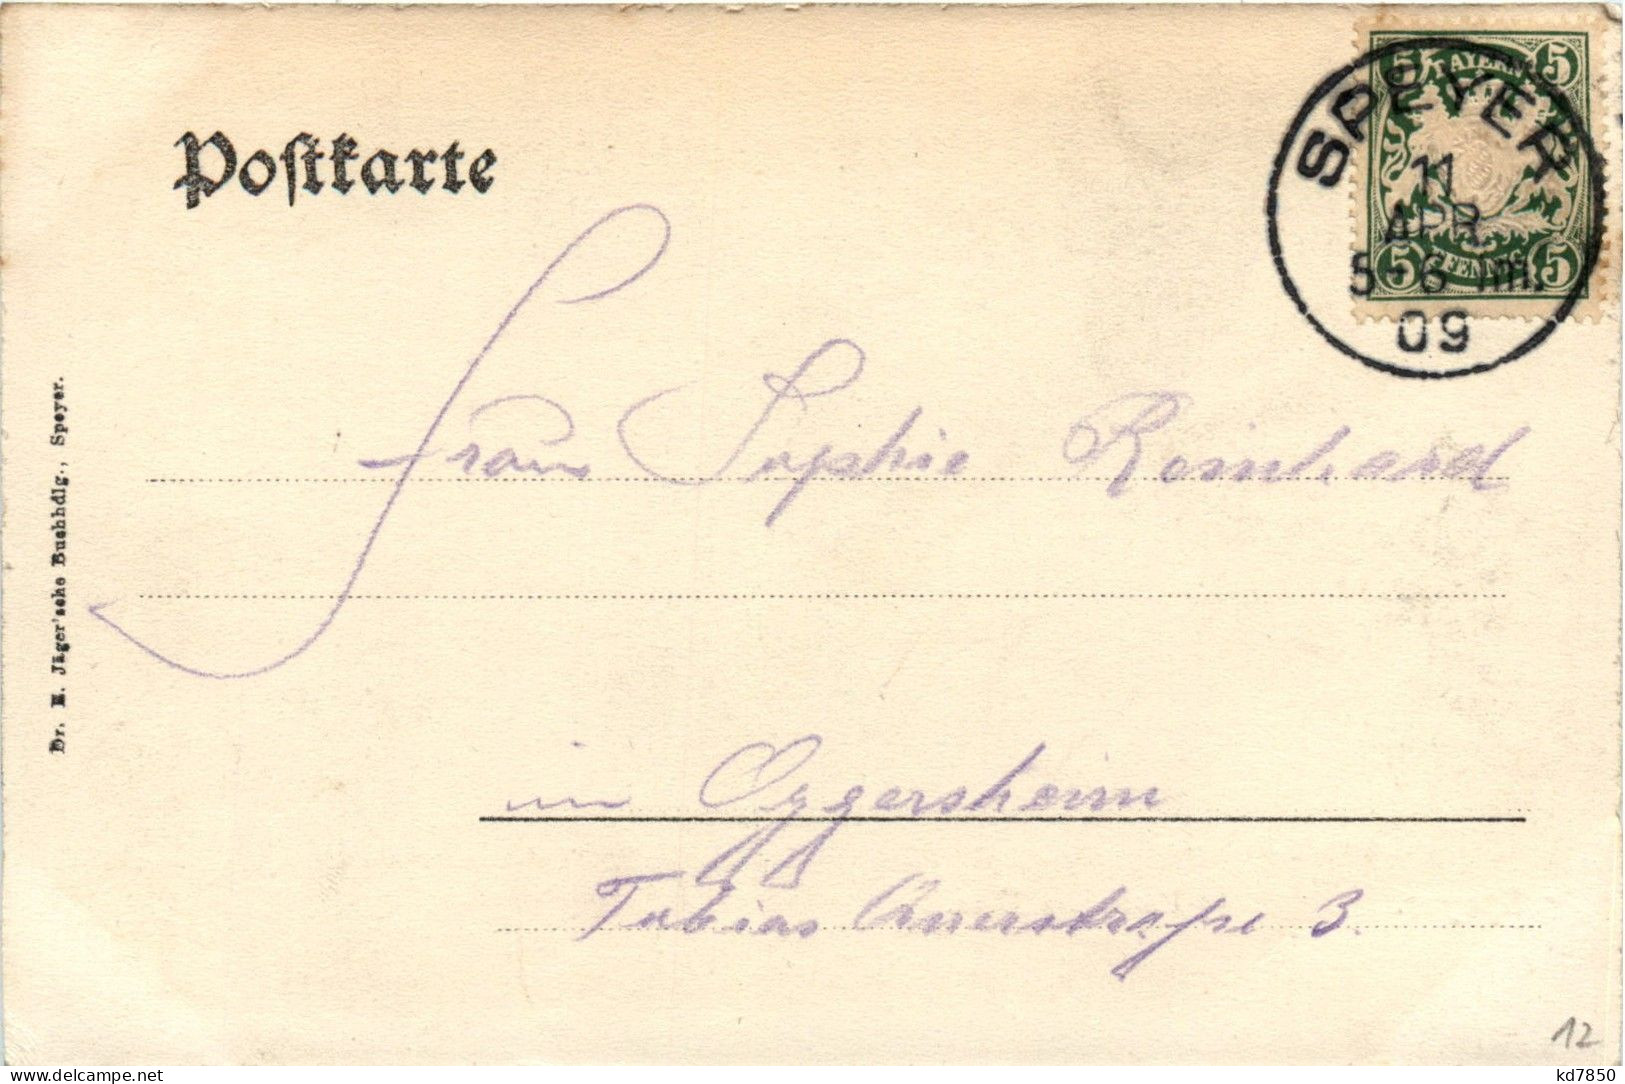 Postkarte
5 BAYERN 5
SPEYER
11
APR
5-6 Nm.
09
5 PFENNIG 5
Frau Sophie Reinhard
in Oggersheim
Tobias Querstraße 3.
Dr. E. Jäger'sche Buchhdlg., Speyer.
12
kd7850